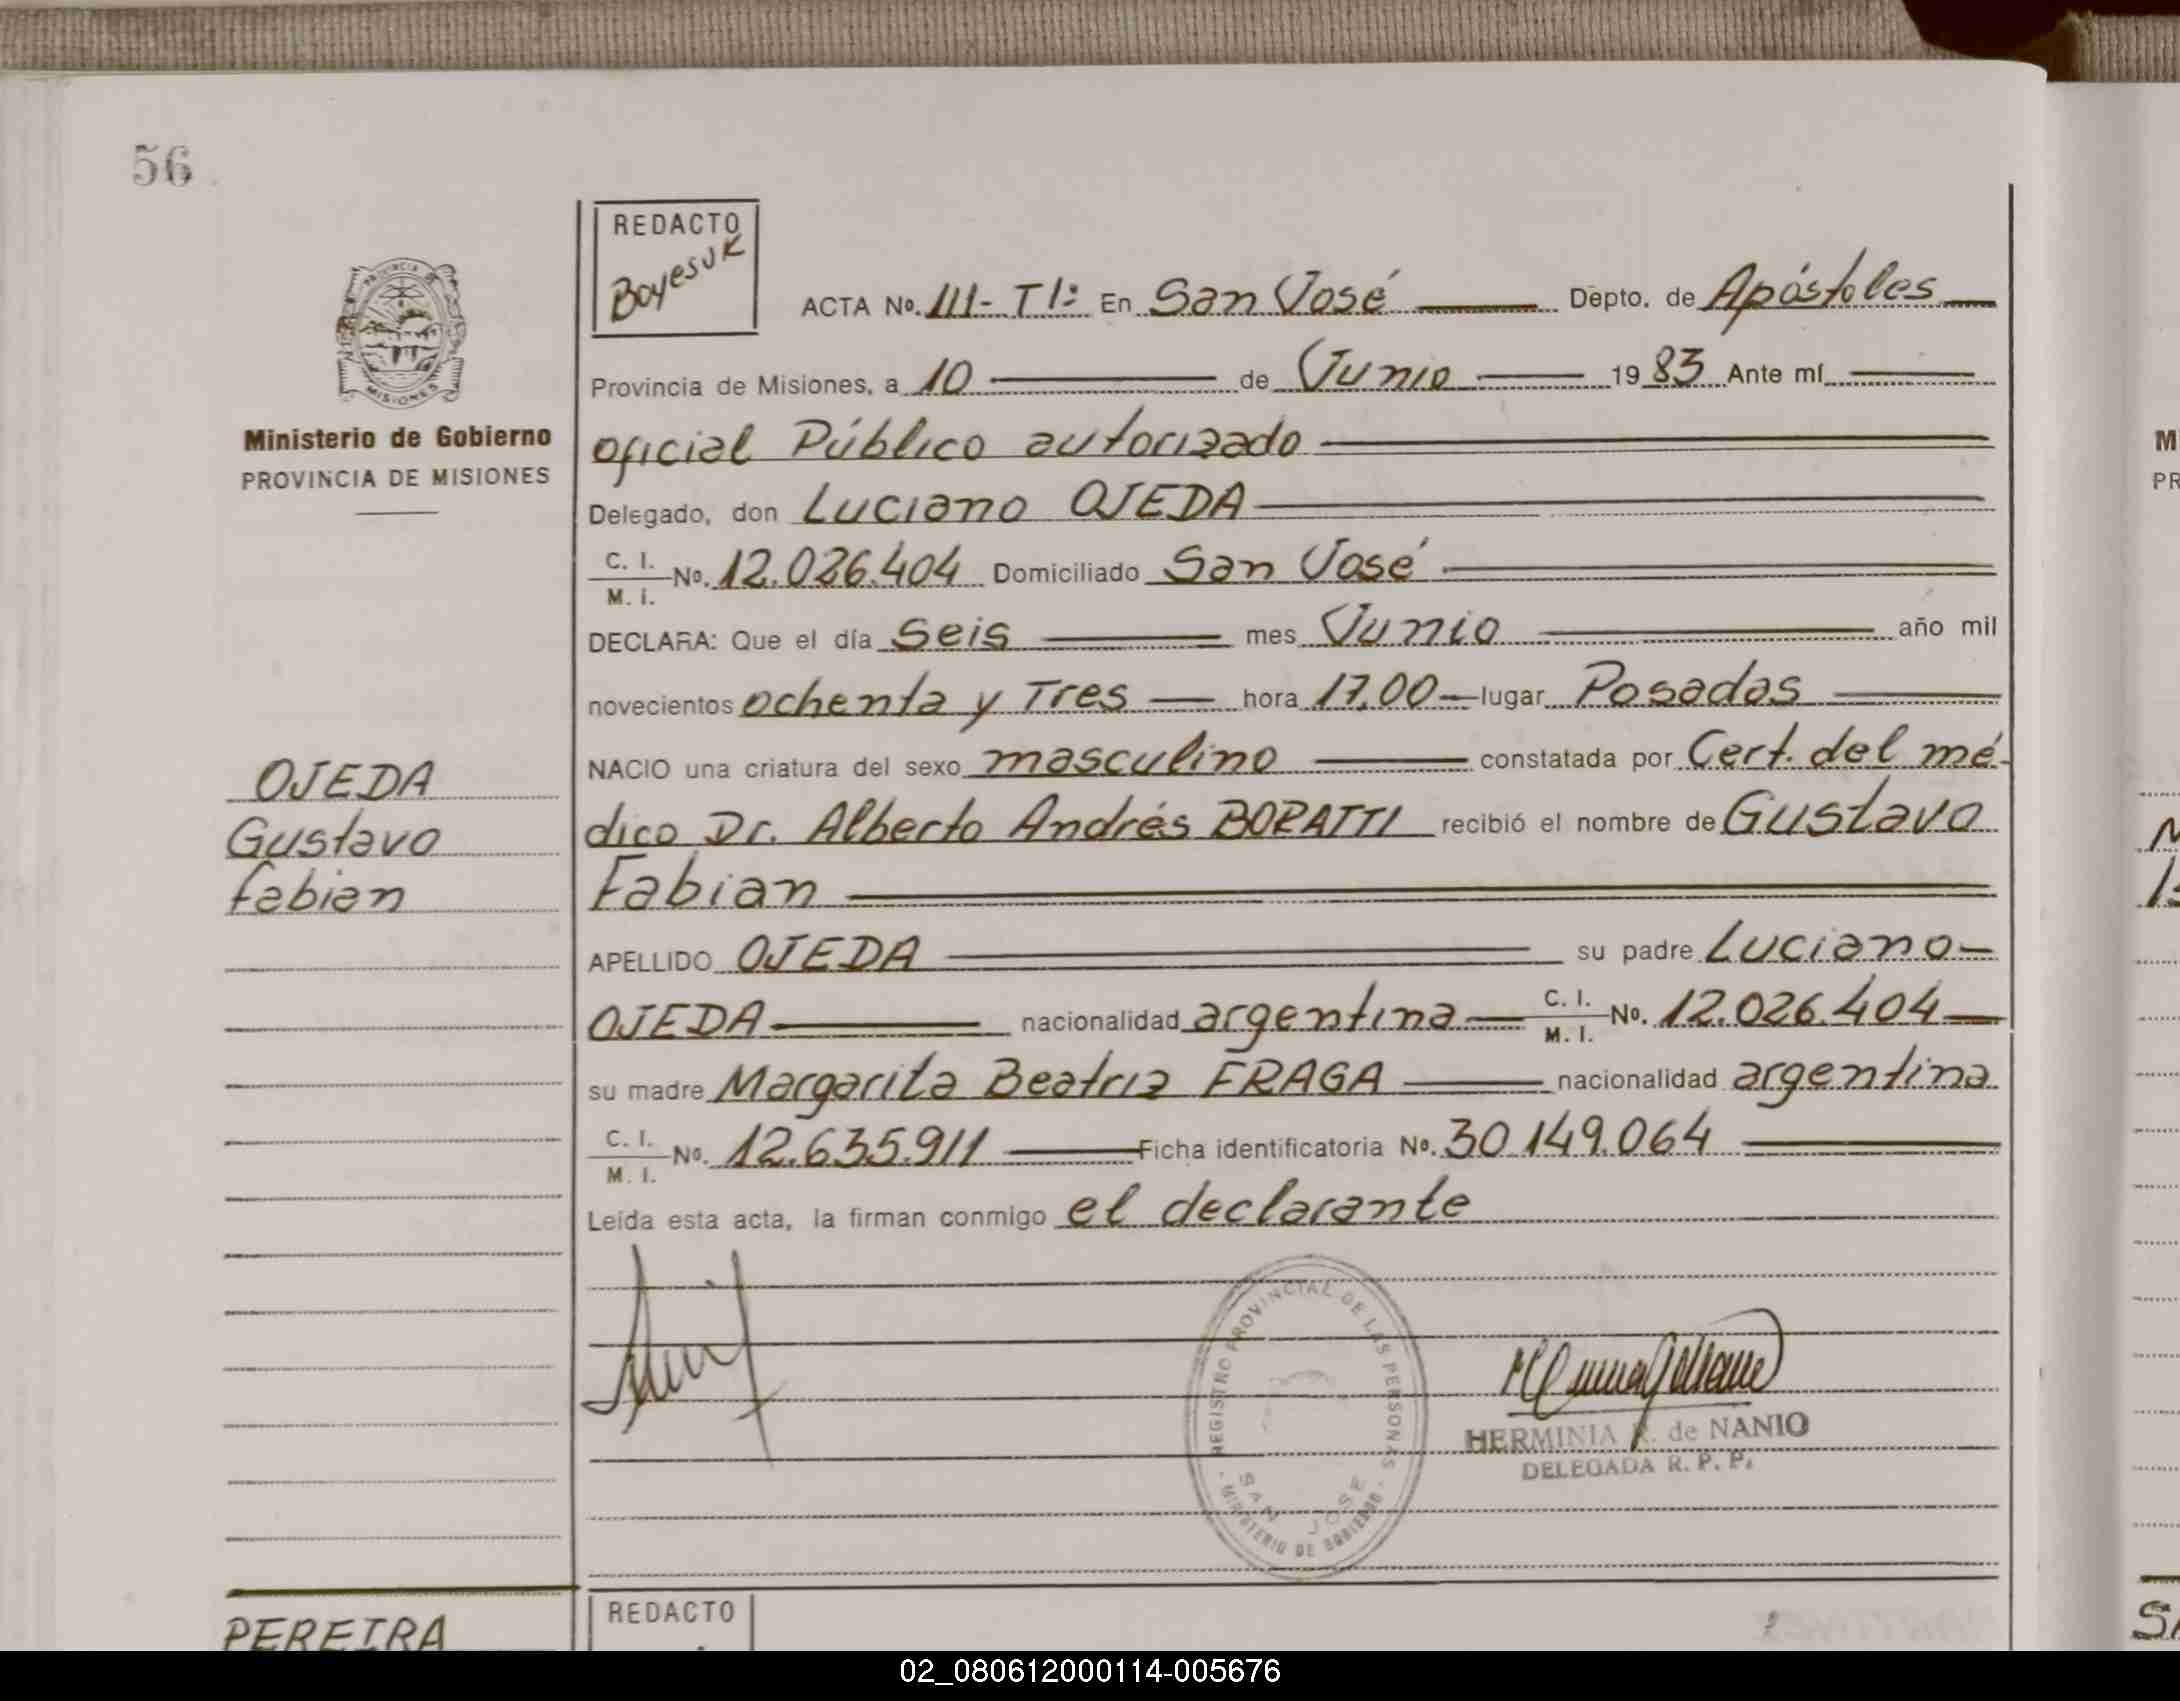 56
REDACTO
Boyesuk
PROVINCIA DE
MISIONES
Ministerio de Gobierno
PROVINCIA DE MISIONES
ACTA Nº. 111- T1: En San José Depto. de Apóstoles
Provincia de Misiones, a 10 de Junio 1983 Ante mí
oficial Público autorizado
Delegado, don Luciano OJEDA
C. I.
M. I. Nº. 12.026.404 Domiciliado San José
DECLARA: Que el día Seis mes Junio año mil
novecientos ochenta y Tres hora 17,00 lugar Posadas
NACIO una criatura del sexo masculino constatada por Cert. del mé-
dico Dr. Alberto Andrés BORATTI recibió el nombre de Gustavo
Fabian
APELLIDO OJEDA su padre Luciano
OJEDA nacionalidad argentina C. I.
M. I. Nº. 12.026.404
su madre Margarita Beatriz FRAGA nacionalidad argentina
C. I.
M. I. Nº. 12.635.911 Ficha identificatoria Nº. 30.149.064
Leída esta acta, la firman conmigo el declarante
OJEDA
Gustavo
Fabian
REGISTRO PROVINCIAL DE LAS PERSONAS
SAN JOSE
MINISTERIO DE GOBIERNO
HERMINIA R. de NANIO
DELEGADA R. P. P.
PEREIRA
REDACTO
02_080612000114-005676